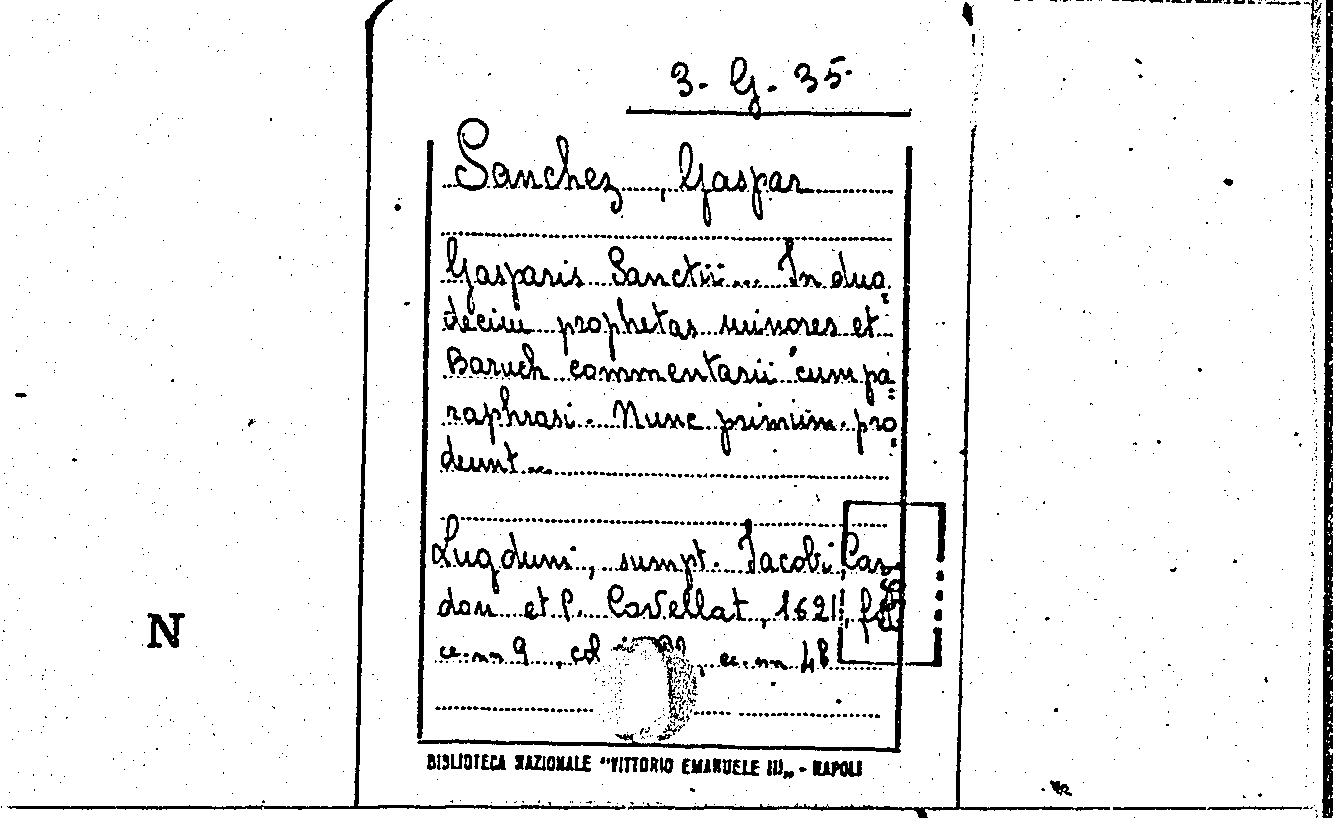 3. G. 35.
Sanchez, Gaspar
Gasparis Sanctii... In duo=
decim prophetas minores et
Baruch commentarii cum pa=
raphrasi. Nunc primum pro=
deunt...
Lugduni, sumpt. Jacobi Car=
don et P. Cavellat, 1621, fol
cc. nn 9, col , cc. nn 48
N
BIBLIOTECA NAZIONALE "VITTORIO EMANUELE III„ - NAPOLI